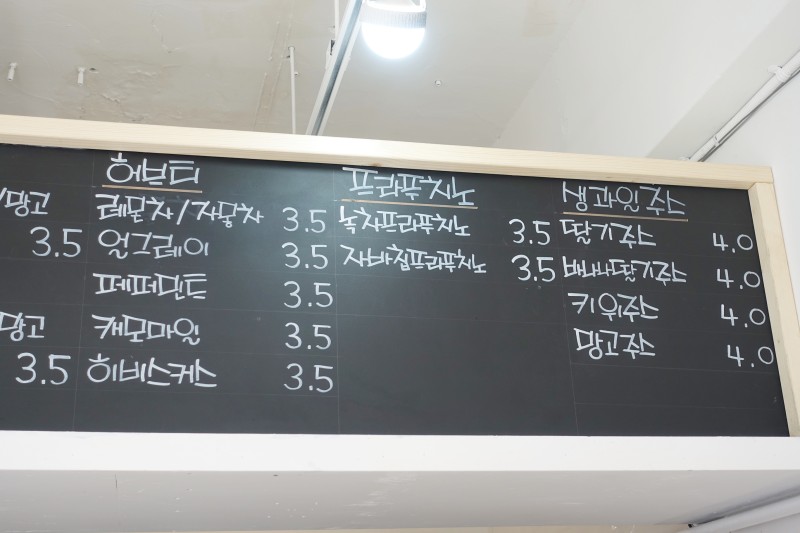 /망고
3.5
망고
3.5
허브티
레몬차/자몽차 3.5
얼그레이 3.5
페퍼민트 3.5
캐모마일 3.5
히비스커스 3.5
프라푸치노
녹차프라푸치노 3.5
자바칩프라푸치노 3.5
생과일주스
딸기주스 4.0
바나나딸기주스 4.0
키위주스 4.0
망고주스 4.0